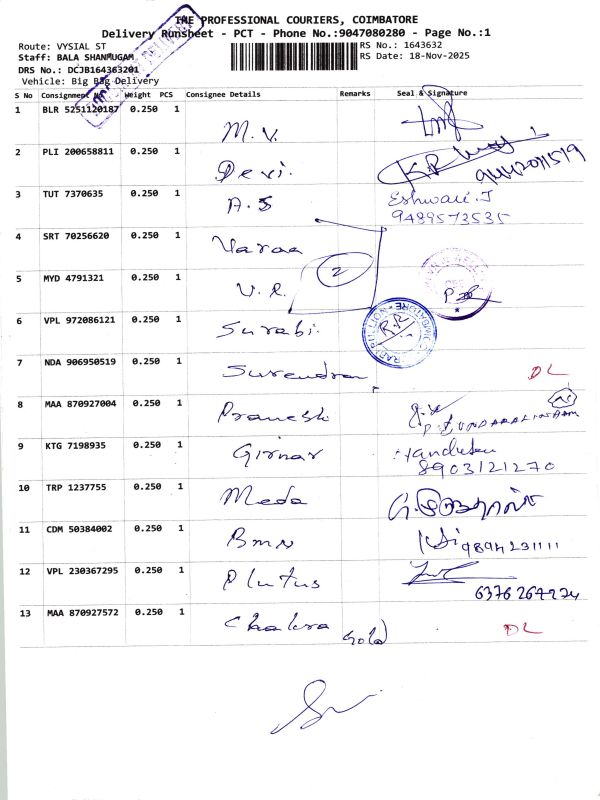 THE PROFESSIONAL COURIERS, COIMBATORE
Delivery Runsheet - PCT - Phone No.:9047080280 - Page No.:1
Route: VYSIAL ST
RS No.: 1643632
Staff: BALA SHANMUGAM
RS Date: 18-Nov-2025
DRS No.: DCJB164363201
Vehicle: Big Bag Delivery
S No Consignment Weight PCS Consignee Details Remarks Seal & Signature
1 BLR 5251120187 0.250 1 M.V.
2 PLI 200658811 0.250 1 Devi.
3 TUT 7370635 0.250 1 A.S Eshwari.J
9489573535
4 SRT 70256620 0.250 1 Varaa
2
5 MYD 4791321 0.250 1 V.R.
6 VPL 972086121 0.250 1 Surabi. R.R
7 NDA 906950519 0.250 1 Surendran DL
8 MAA 870927004 0.250 1 Pranesh
9 KTG 7198935 0.250 1 Girnar
8903121270
10 TRP 1237755 0.250 1 Meda
11 CDM 50384002 0.250 1 BMN 9894231111
12 VPL 230367295 0.250 1 Plutus
6376264274
13 MAA 870927572 0.250 1 Chakra Gold DL